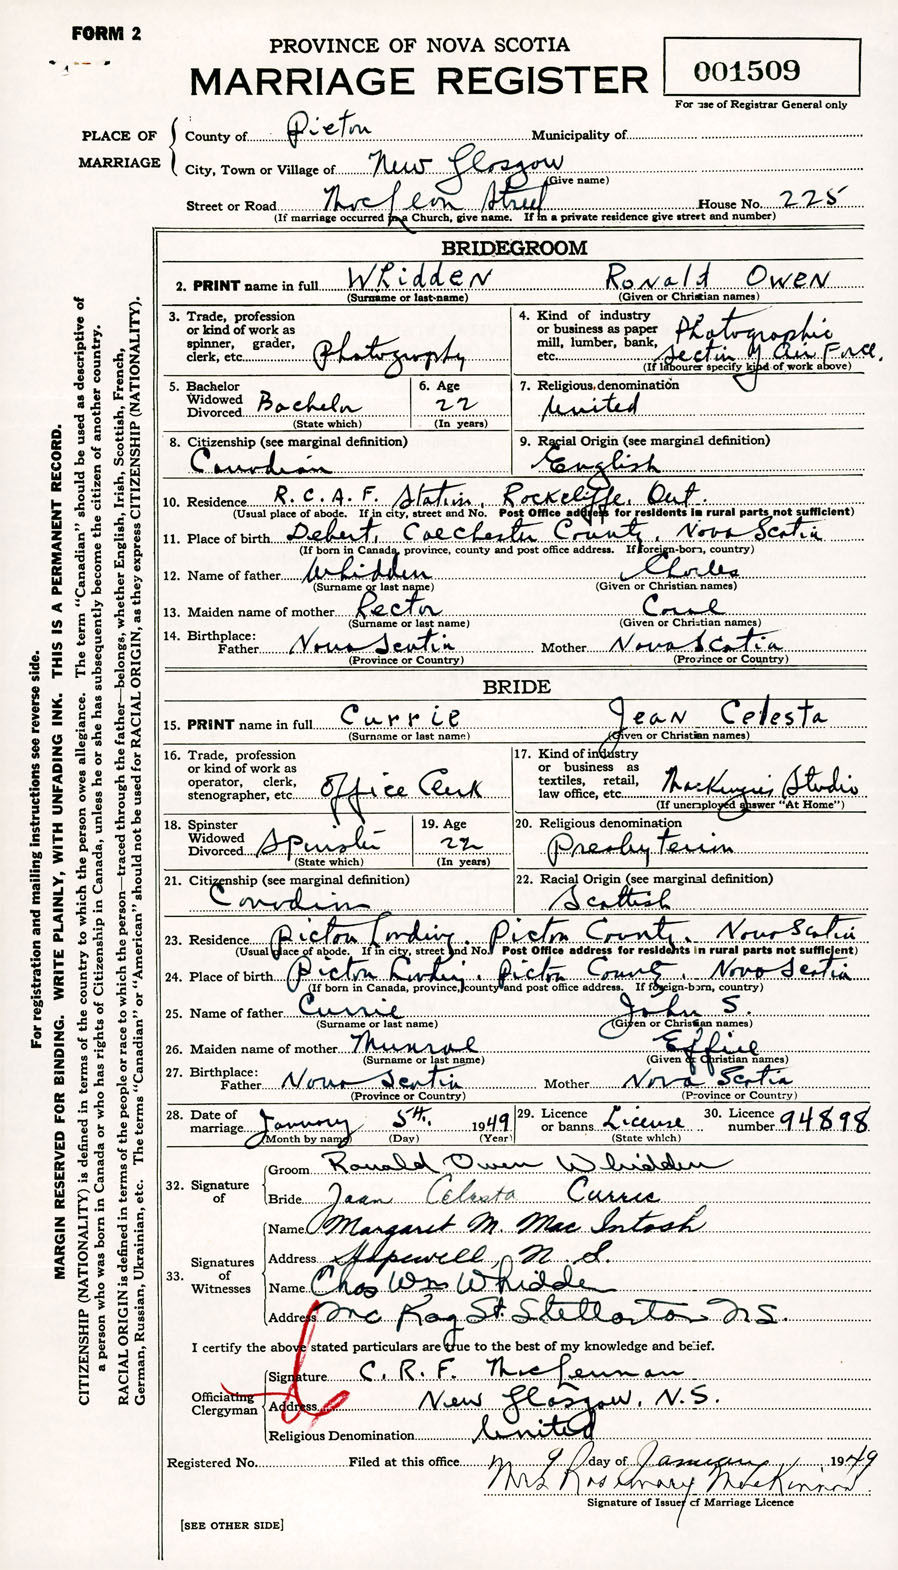 FORM 2
PROVINCE OF NOVA SCOTIA
MARRIAGE REGISTER
001509
For use of Registrar General only
PLACE OF MARRIAGE
County of Pictou Municipality of
City, Town or Village of New Glasgow
(Give name)
Street or Road MacLean Street House No. 225
(If marriage occurred in a Church, give name. If in a private residence give street and number)
BRIDEGROOM
2. PRINT name in full Whidden Ronald Owen
(Surname or last-name) (Given or Christian names)
3. Trade, profession or kind of work as spinner, grader, clerk, etc. Photography
4. Kind of industry or business as paper mill, lumber, bank, etc. Photographic Section of Air Force.
(If labourer specify kind of work above)
5. Bachelor Widowed Divorced Bachelor
(State which)
6. Age 22
(In years)
7. Religious denomination United
8. Citizenship (see marginal definition)
Canadian
9. Racial Origin (see marginal definition)
English
10. Residence R.C.A.F. Station, Rockcliffe, Ont.
(Usual place of abode. If in city, street and No. Post Office address for residents in rural parts not sufficient)
11. Place of birth Debert, Colchester County, Nova Scotia
(If born in Canada, province, county and post office address. If foreign-born, country)
12. Name of father Whidden Charles
(Surname or last name) (Given or Christian names)
13. Maiden name of mother Rector Coral
(Surname or last name) (Given or Christian names)
14. Birthplace: Father Nova Scotia Mother Nova Scotia
(Province or Country) (Province or Country)
BRIDE
15. PRINT name in full Currie Jean Celesta
(Surname or last name) (Given or Christian names)
16. Trade, profession or kind of work as operator, clerk, stenographer, etc. Office Clerk
17. Kind of industry or business as textiles, retail, law office, etc. MacKenzies Studio
(If unemployed answer "At Home")
18. Spinster Widowed Divorced Spinster
(State which)
19. Age 22
(In years)
20. Religious denomination
Presbyterian
21. Citizenship (see marginal definition)
Canadian
22. Racial Origin (see marginal definition)
Scottish
23. Residence Pictou Landing, Pictou County, Nova Scotia
(Usual place of abode. If in city, street and No. Post Office address for residents in rural parts not sufficient)
24. Place of birth Pictou Landing, Pictou County, Nova Scotia
(If born in Canada, province, county and post office address. If foreign-born, country)
25. Name of father Currie John S.
(Surname or last name) (Given or Christian names)
26. Maiden name of mother Munroe Effie
(Surname or last name) (Given or Christian names)
27. Birthplace: Father Nova Scotia Mother Nova Scotia
(Province or Country) (Province or Country)
28. Date of marriage January 5th. 1949
(Month by name) (Day) (Year)
29. Licence or banns License
(State which)
30. Licence number 94898
32. Signature of
Groom Ronald Owen Whidden
Bride Jean Celesta Currie
33. Signatures of Witnesses
Name Margaret M. MacIntosh
Address Hopewell, N.S.
Name Chas Wm Whidden
Address McKay St. Stellarton N.S.
I certify the above stated particulars are true to the best of my knowledge and belief.
Officiating Clergyman
Signature C. R. F. MacLennan
Address New Glasgow, N.S.
Religious Denomination United
Registered No. Filed at this office 9 day of January 1949
Mrs Rosemary MacKinnon
Signature of Issuer of Marriage Licence
[SEE OTHER SIDE]
For registration and mailing instructions see reverse side.
MARGIN RESERVED FOR BINDING. WRITE PLAINLY, WITH UNFADING INK. THIS IS A PERMANENT RECORD.
CITIZENSHIP (NATIONALITY) is defined in terms of the country to which the person owes allegiance. The term "Canadian" should be used as descriptive of
a person who was born in Canada or who has rights of Citizenship in Canada, unless he or she has subsequently become the citizen of another country.
RACIAL ORIGIN is defined in terms of the people or race to which the person—traced through the father—belongs, whether English, Irish, Scottish, French,
German, Russian, Ukrainian, etc. The terms "Canadian" or "American" should not be used for RACIAL ORIGIN, as they express CITIZENSHIP (NATIONALITY).